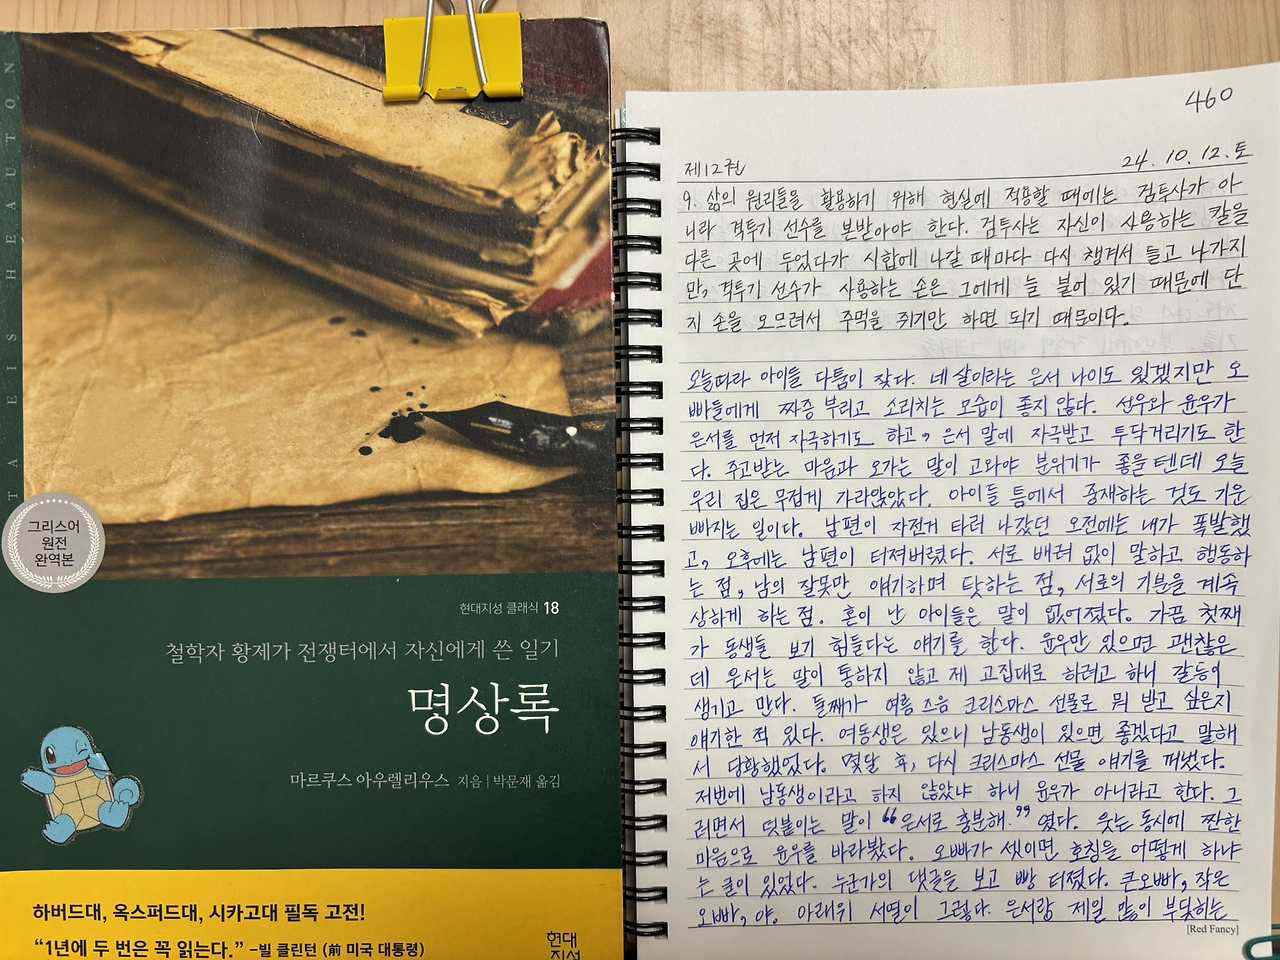 TA EIS HEAUTON
그리스어
원전
완역본
현대지성 클래식 18
철학자 황제가 전쟁터에서 자신에게 쓴 일기
명상록
마르쿠스 아우렐리우스 지음 | 박문재 옮김
하버드대, 옥스퍼드대, 시카고대 필독 고전!
“1년에 두 번은 꼭 읽는다.” –빌 클린턴 (前 미국 대통령)
현대
지성
460
제12권
24. 10. 12. 토
9. 삶의 원리들을 활용하기 위해 현실에 적용할 때에는 검투사가 아
니라 격투기 선수를 본받아야 한다. 검투사는 자신이 사용하는 칼을
다른 곳에 두었다가 시합에 나갈 때마다 다시 챙겨서 들고 나가지
만, 격투기 선수가 사용하는 손은 그에게 늘 붙어 있기 때문에 단
지 손을 오므려서 주먹을 쥐기만 하면 되기 때문이다.
오늘따라 아이들 다툼이 잦다. 네살이라는 은서 나이도 있겠지만 오
빠들에게 짜증 부리고 소리치는 모습이 좋지 않다. 선우와 윤우가
은서를 먼저 자극하기도 하고, 은서 말에 자극받고 투닥거리기도 한
다. 주고받는 마음과 오가는 말이 고와야 분위기가 좋을텐데 오늘
우리 집은 무겁게 가라앉았다. 아이들 틈에서 중재하는 것도 기운
빠지는 일이다. 남편이 자전거 타러 나갔던 오전에는 내가 폭발했
고, 오후에는 남편이 터져버렸다. 서로 배려 없이 말하고 행동하
는 점, 남의 잘못만 얘기하며 탓하는 점, 서로의 기분을 계속
상하게 하는 점. 혼이 난 아이들은 말이 없어졌다. 가끔 첫째
가 동생들 보기 힘들다는 얘기를 한다. 윤우만 있으면 괜찮은
데 은서는 말이 통하지 않고 제 고집대로 하려고 하니 갈등이
생기고 만다. 둘째가 여름 즈음 크리스마스 선물로 뭐 받고 싶은지
얘기한 적 있다. 여동생은 있으니 남동생이 있으면 좋겠다고 말해
서 당황했었다. 몇달 후, 다시 크리스마스 선물 얘기를 꺼냈다.
저번에 남동생이라고 하지 않았냐 하니 윤우가 아니라고 한다. 그
러면서 덧붙이는 말이 “은서로 충분해.” 였다. 웃는 동시에 짠한
마음으로 윤우를 바라봤다. 오빠가 셋이면 호칭을 어떻게 하냐
는 글이 있었다. 누군가의 댓글을 보고 빵 터졌다. 큰오빠, 작은
오빠, 야. 아래위 서열이 그렇다. 은서랑 제일 많이 부딪히는
[Red Fancy]